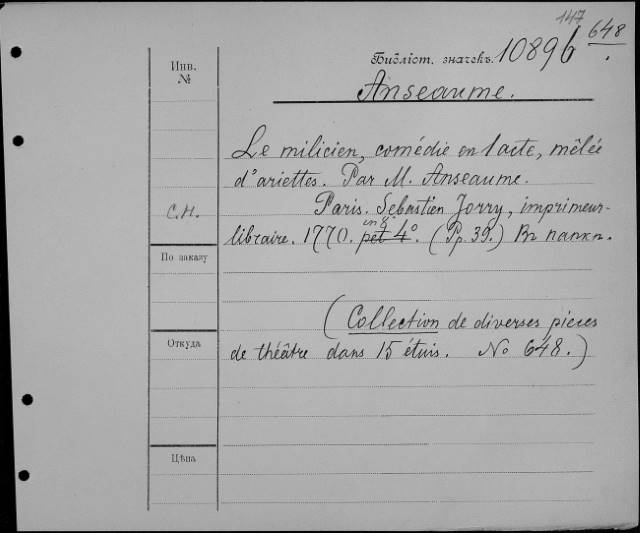 147
648
Библіот. значекъ. 10896
Anseaume.
Инв.
№
Le milicien, comédie en 1 acte, mêlée
d'ariettes. Par M. Anseaume.
C.H.
Paris. Sebastien Jorry, imprimeur-
in 8º
libraire. 1770. pet 4º. (Pp. 39.) Въ папкѣ.
По заказу
(Collection de diverses pieces
Откуда
de théâtre dans 15 étuis. No 648.)
Цѣна